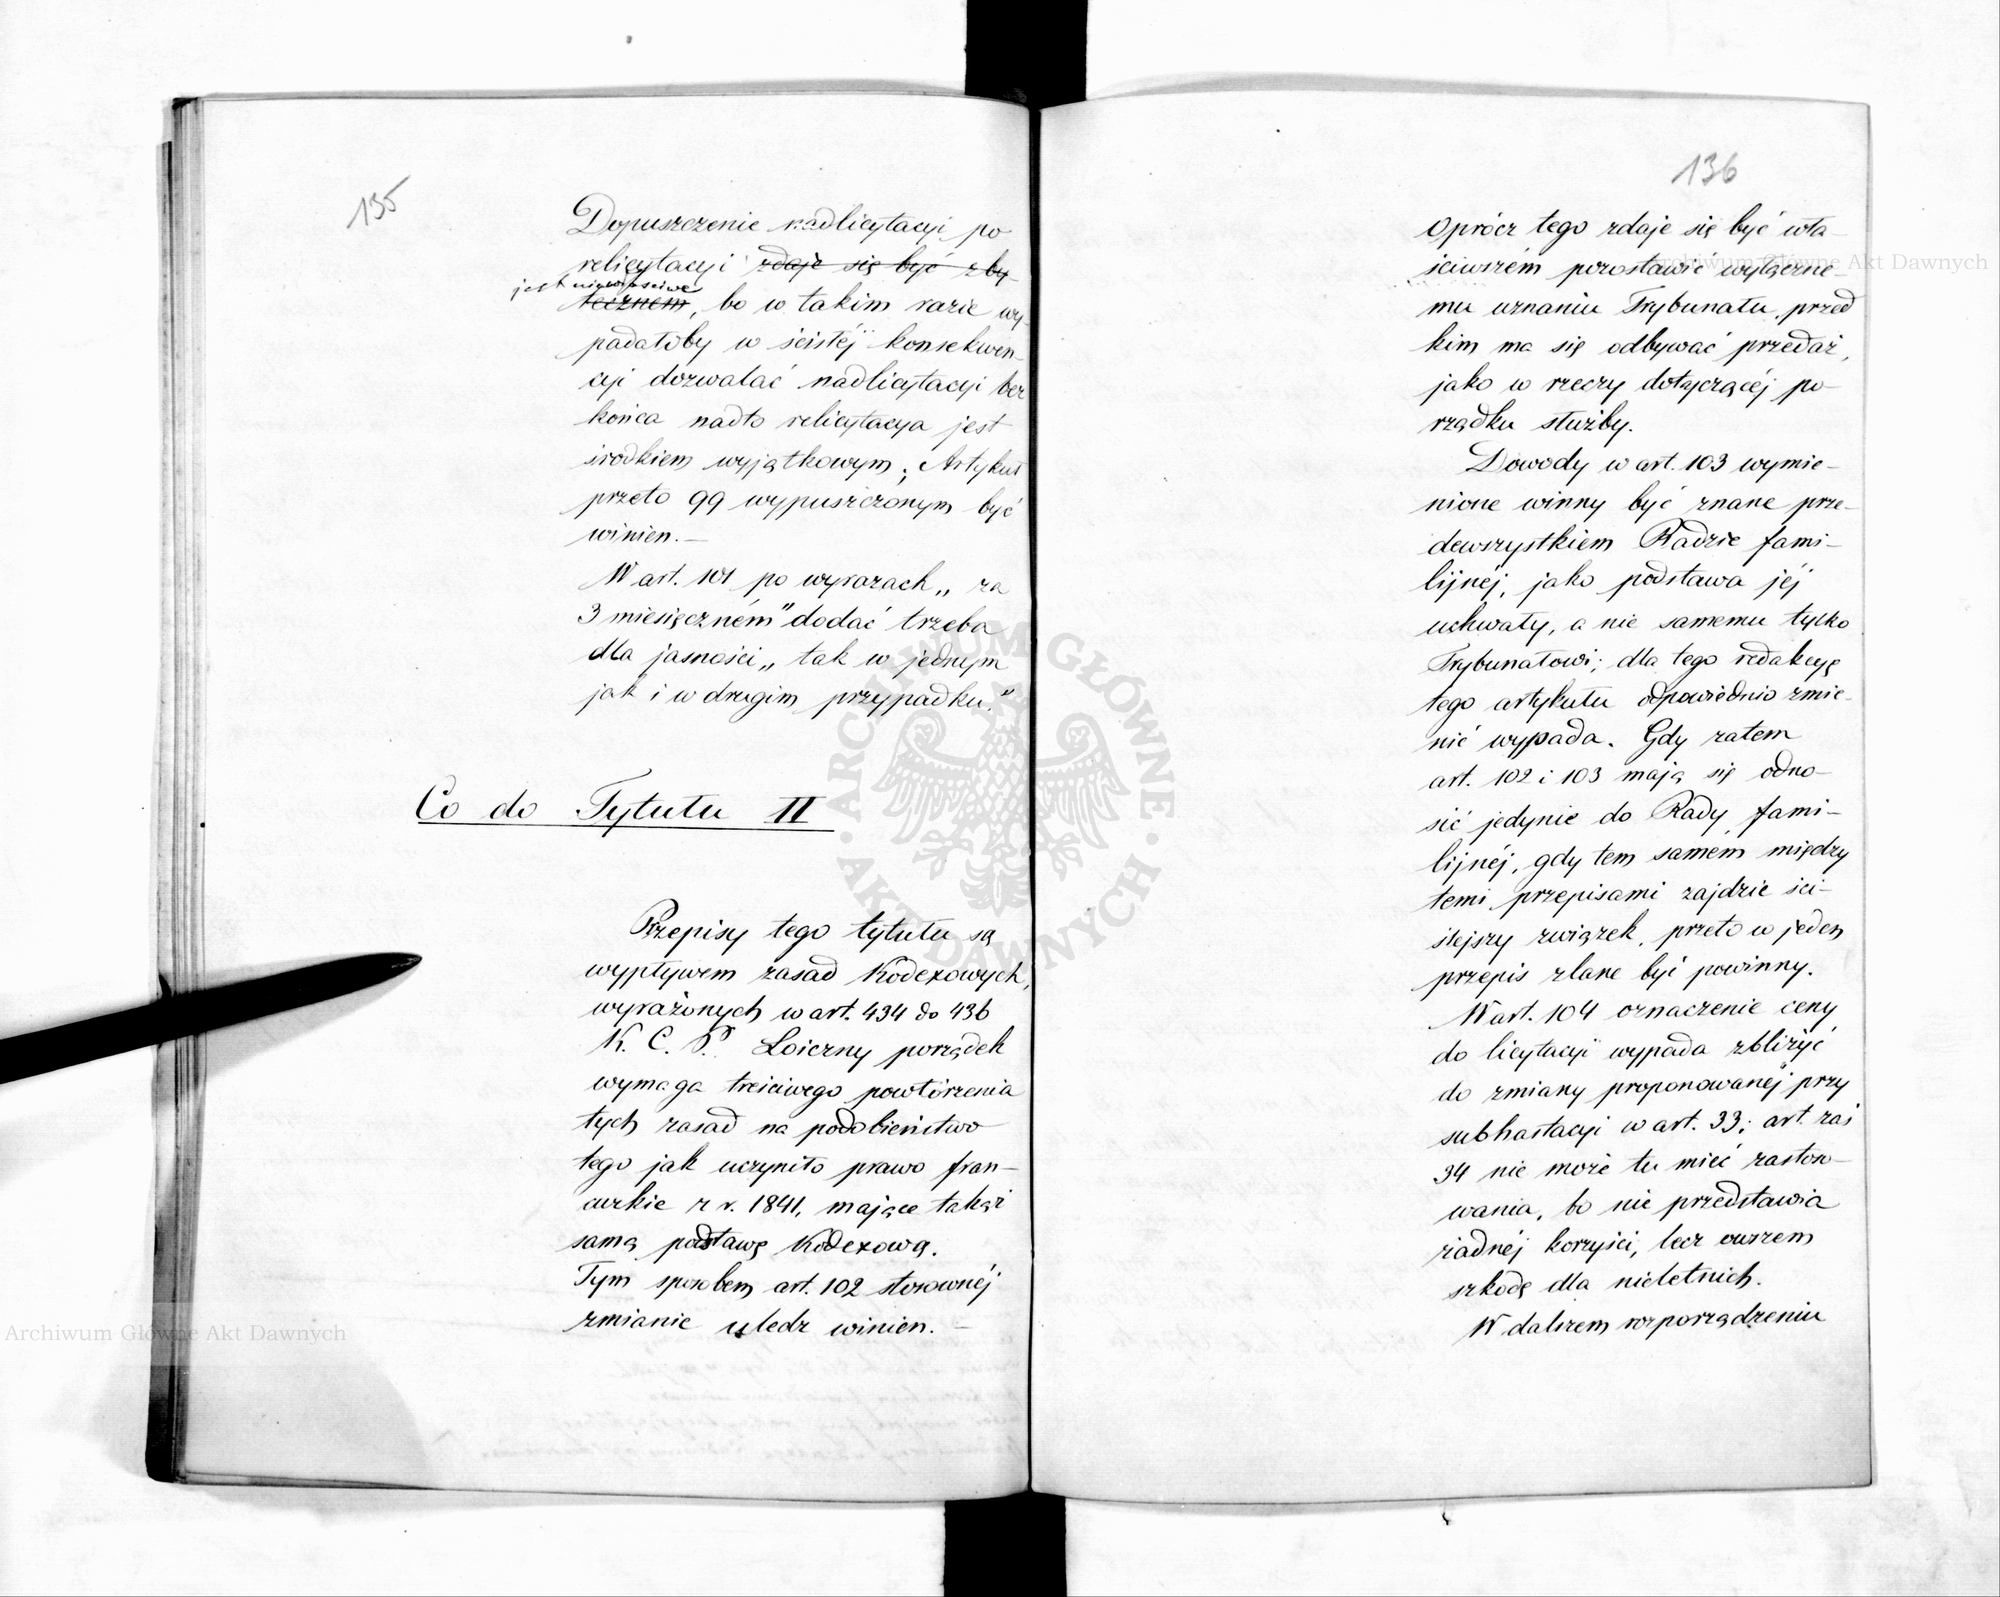 135
Dopuszczenie nadlicytacyi po
relicytacyi zdaje się być zby
jest niewłaściwe
tecznem, bo w takim razie wy-
padałoby w ścisłéj konsekwen-
cyi dozwalać nadlicytacyi bez
końca nadto relicytacya jest
środkiem wyjątkowym; Artykuł
przeto 99 wypuszczonym być
winien.—
W art. 101 po wyrazach „za
3 miesięczném" dodać trzeba
dla jasności „tak w jednym
jak i w drugim przypadku."
Co do Tytułu II
Przepisy tego tytułu są
wypływem zasad Kodexowych,
wyrażonych w art. 434 do 436
K. C. P. Loiczny porządek
wymaga treściwego powtórzenia
tych zasad na podobieństwo
tego jak uczyniło prawo fran-
cuzkie z r. 1841, mające takąż
samą podstawę Kodexową.
Tym sposobem art. 102 stosownéj
zmianie uledz winien. —
136
Oprócz tego zdaje się być wła-
ściwszém pozostawić wyłączne-
mu uznaniu Trybunału, przed
kim ma się odbywać przedaż,
jako w rzeczy dotyczącéj po-
rządku służby.
Dowody w art. 103 wymie-
nione winny być znane prze-
dewszystkiem Radzie fami-
lijnéj, jako podstawa jéj
uchwały, a nie samemu tylko
Trybunałowi; dla tego redakcyę
tego artykułu odpowiednio zmie-
nić wypada. Gdy zatem
art. 102 i 103 mają się odno-
sić jedynie do Rady fami-
lijnéj, gdy tem samém między
temi przepisami zajdzie ści-
ślejszy związek, przeto w jeden
przepis zlane być powinny.
W art. 104 oznaczenie ceny
do licytacyi wypada zbliżyć
do zmiany proponowanéj przy
subhastacyi w art. 33; art. zaś
34 nie może tu mieć zastoso-
wania, bo nie przedstawia
żadnéj korzyści, lecz owszem
szkodę dla nieletnich.
W dalszem rozporządzeniu
Archiwum Główne Akt Dawnych
Archiwum Główne Akt Dawnych
ARCHIWUM GŁÓWNE · AKT DAWNYCH ·